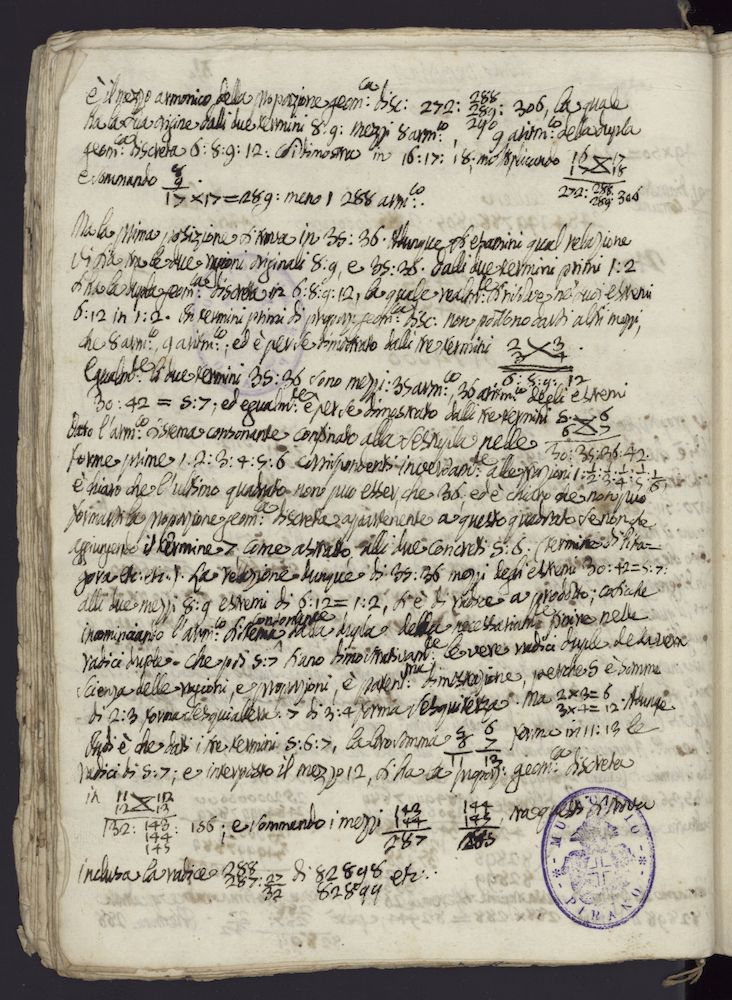 è il mezzo armonico della proporzione geom:ca disc: 272: 288 289: 306, la quale
290
ha la sua origine dalli due termini 8:9: mezzi 8 arm:co, 9 aritm:co della dupla
geom:ca discreta 6:8:9:12: Si dimostra in 16:17:18; moltiplicando 16 17
17 18
e sommando 8
9
272: 288 306
289:
17 × 17 = 289: meno 1 288 arm:co.
Ma la prima posizione si trova in 35:36. Dunque si esamini qual relazione
vi sia tra le due ragioni originali 8:9, e 35:36. Dalli due termini primi 1:2
si ha la dupla geom:ca discreta in 6:8:9:12, la quale realm:te si risolve ne' suoi estremi
6:12 in 1:2. In termini primi di propor: geom:ca disc: non possono darsi altri mezzi,
che 8 arm:co, 9 aritm:co; ed è per se dimostrato dalli tre termini 2 3
3 4
6:8:9:12
Egualm:te li due termini 35:36 sono mezzi: 35 arm:co, 36 aritm:co degli estremi
30:42 = 5:7; ed egualm:te è per se dimostrato dalli tre termini 5 6
6 7
30:35:36:42.
Dato l'arm:co sistema consonante confinato alla sestupla nelle
forme prime 1:2:3:4:5:6 corrispondenti alle frazioni 1: 1/2: 1/3: 1/4: 1/5: 1/6,
è chiaro che l'ultimo quadrato non può esser, che 36. ed è chiaro che non può
formarsi la proporzione geom:ca discreta appartenente a questo quadrato se non se
aggiungendo il termine 7 come astratto alli due concreti 5:6. (termine di Pita=
gora etc. etc.). La relazione dunque di 35:36 mezzi degli estremi 30:42 = 5:7:
alli due mezzi 8:9 estremi di 6:12 = 1:2, si è di radice a prodotto; cosicchè
incominciando l'arm:co sistema consonante dalla dupla della necessariam:te finire nelle
radici duple. Che poi 5:7 siano dimostrativam:te le vere radici duple dedotte
scienza delle ragioni, e proporzioni, è patentiss:ma dimostrazione, perchè 5 è somma
di 2:3 forma sesquialtera. 7 di 3:4 forma sesquiterza. Ma 2×3=6
3×4=12. Dunque
è che dati i tre termini 5:6:7, la loro somma 5 6
6 7
11 13
forma in 11:13 le
radici di 5:7; e interposto il mezzo 12, si ha la propor: geom:ca discreta
in 11 12
12 13
132: 143: 156; e sommando i mezzi 143 144
144 145
287 289
, tra questi si trova
144
145
inclusa la radice 288
287: 27
32
di 82898
82899
etc:.
MUNICIPIO
PIRANO